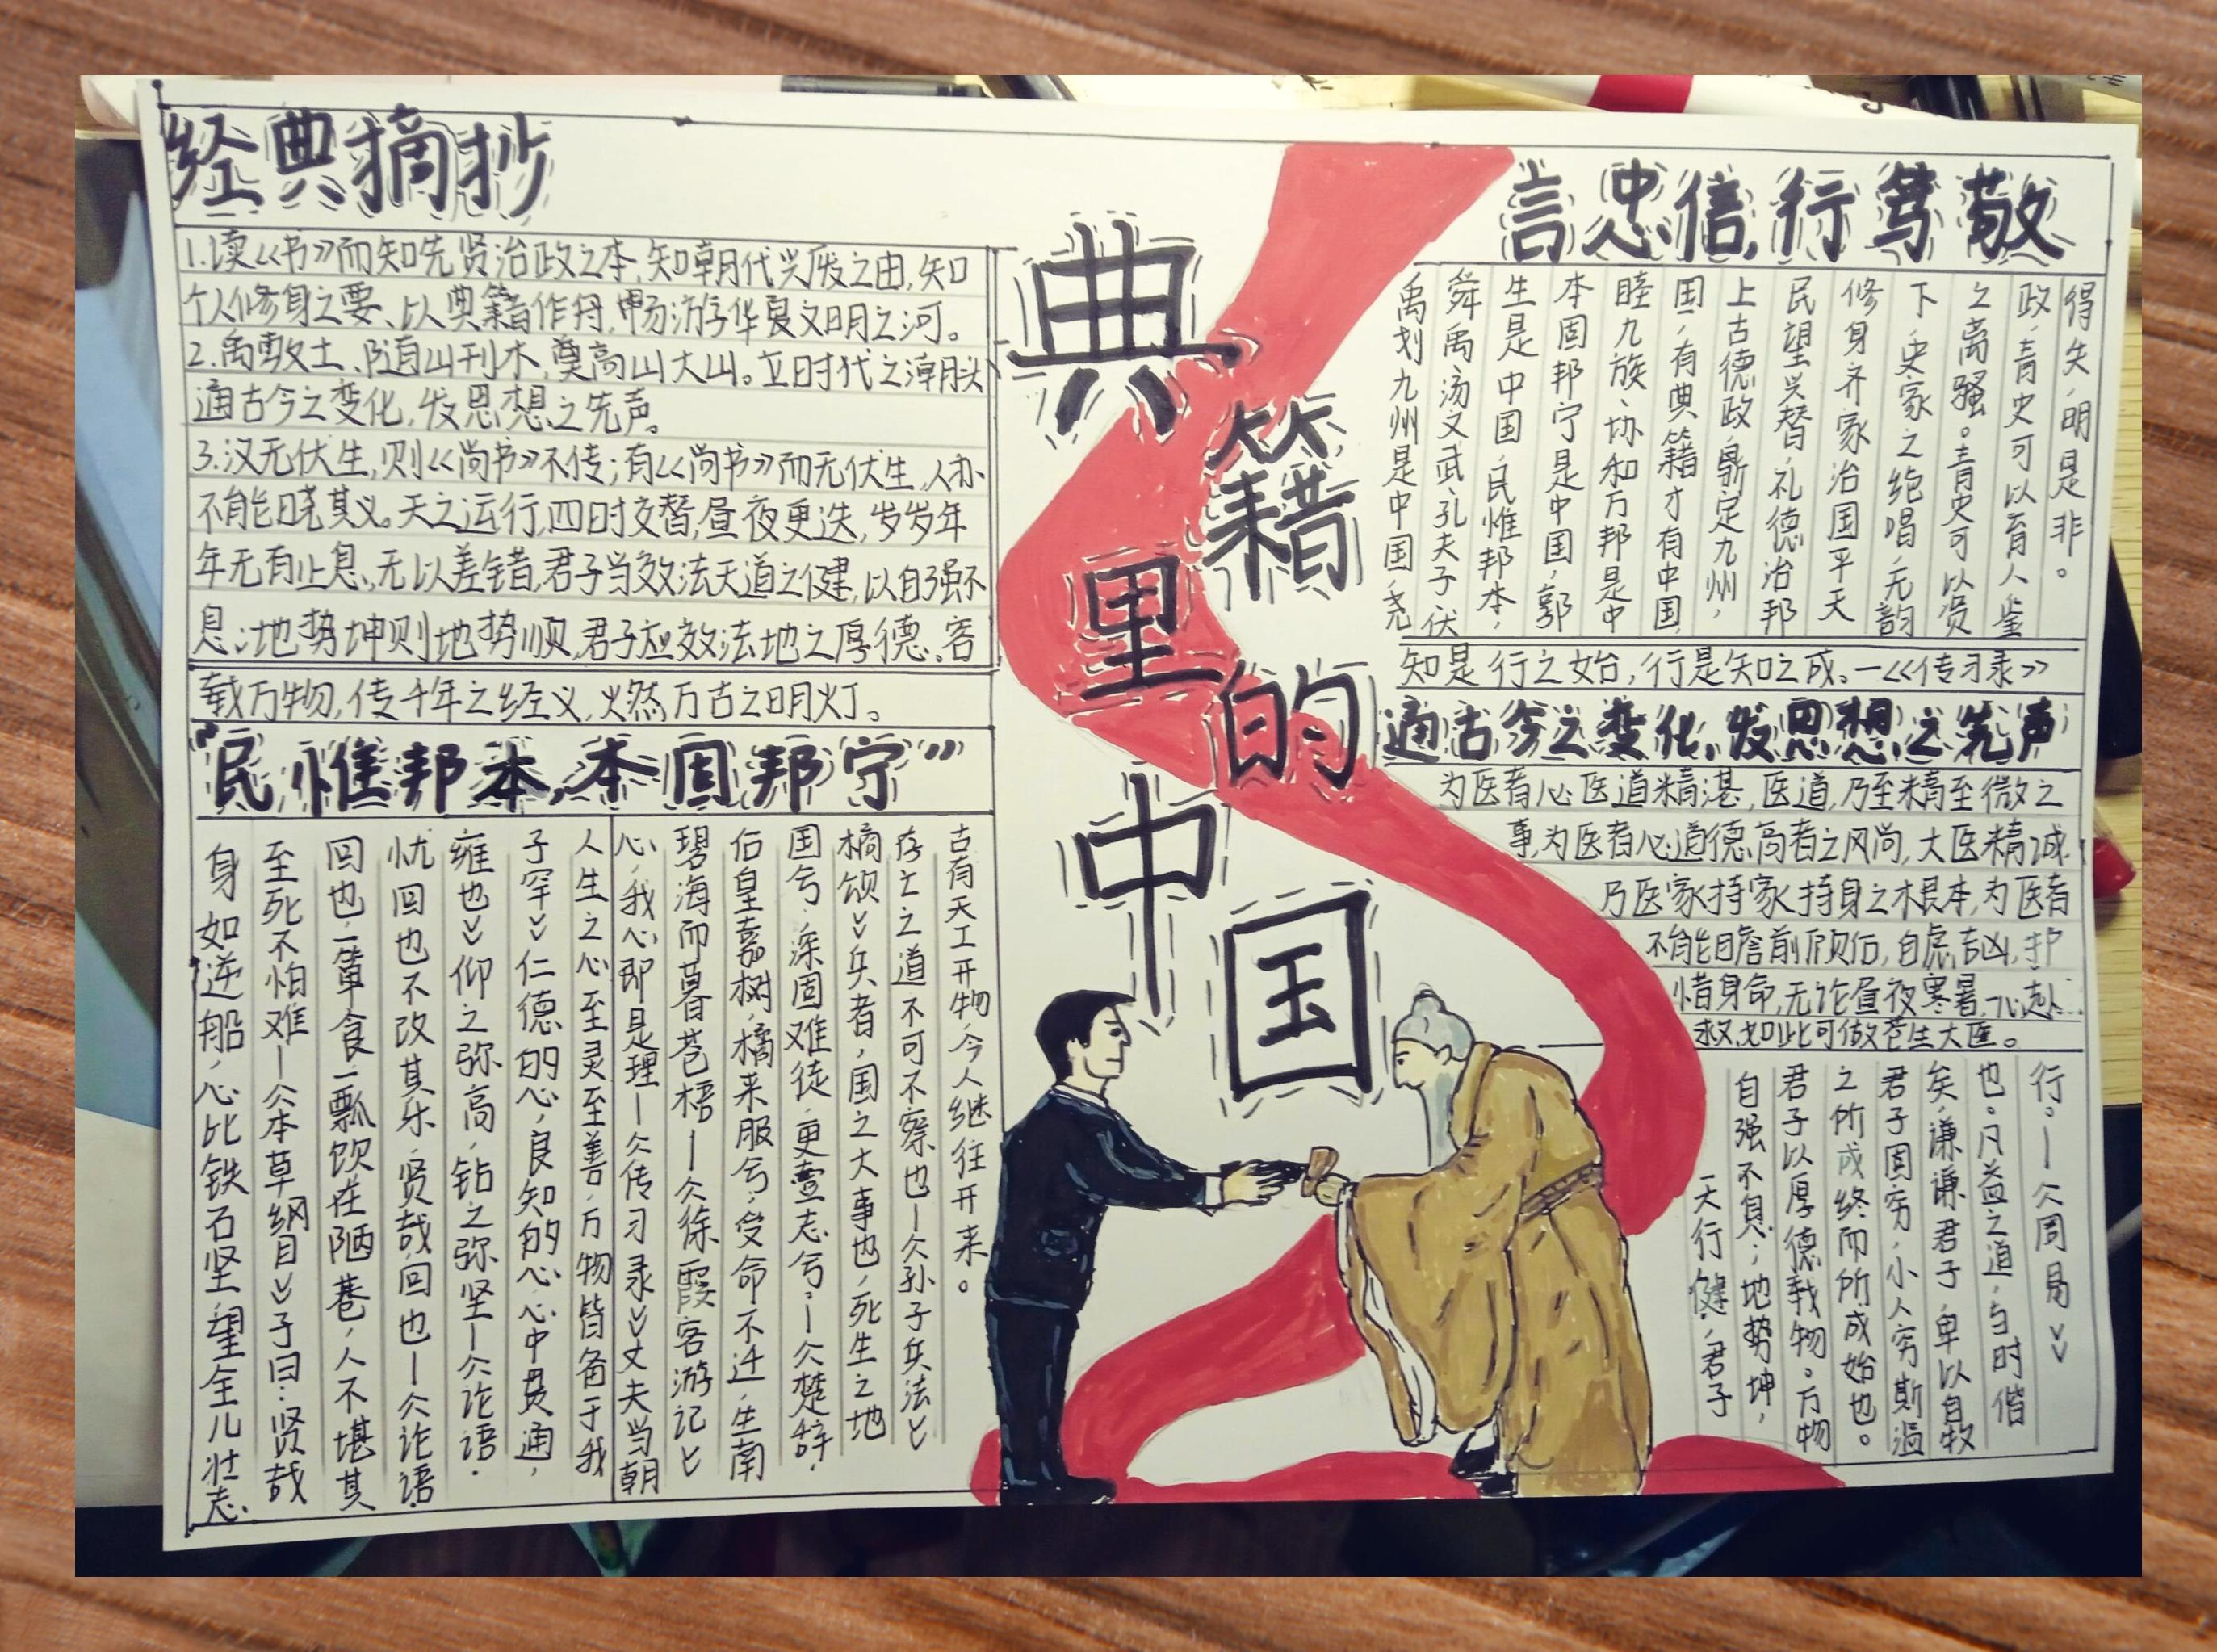 经典摘抄
1.读《书》而知先贤治政之本,知朝代兴废之由,知
个人修身之要、以典籍作舟,畅游华夏文明之河。
2.禹敷土、随山刊木,奠高山大山。立时代之潮头
通古今之变化,发思想之先声。
3.汉无伏生,则《尚书》不传;有《尚书》而无伏生,人亦
不能晓其义。天之运行,四时交替,昼夜更迭,岁岁年
年无有止息,无以差错,君子当效法天道之健,以自强不
息;地势坤则地势顺,君子应效法地之厚德、容
载万物,传千年之经义,燃万古之明灯。
“民惟邦本,本固邦宁”
身如逆船,心比铁石坚望全儿壮志,
至死不怕难—《本草纲目》子曰:贤哉
回也,一箪食一瓢饮在陋巷,人不堪其
忧回也不改其乐,贤哉,回也—《论语·
雍也》仰之弥高,钻之弥坚—《论语·
子罕》仁德的心,良知的心心中贯通,
人生之心至灵至善,万物皆备于我
心,我心即是理—《传习录》丈夫当朝
碧海而暮苍梧—《徐霞客游记》
后皇嘉树,橘来服兮,受命不迁,生南
国兮,深固难徙,更壹志兮,—《楚辞·
橘颂》兵者,国之大事也,死生之地
存亡之道不可不察也—《孙子兵法》
古有天工开物,今人继往开来。
典籍里的中国
言忠信,行笃敬
禹划九州是中国,尧
舜禹汤文武,孔夫子伏
生是中国,民惟邦本,
本固邦宁是中国,郭
睦九族、协和万邦是中
国,有典籍才有中国
上古德政,鼎定九州,
民望兴替,礼德治邦
修身齐家治国平天
下,史家之绝唱,无韵
之离骚。青史可以资
政,青史可以育人,鉴
得失,明是非。
知是行之始,行是知之成。—《传习录》
通古今之变化,发思想之先声
为医者心医道精湛,医道,乃至精至微之
事,为医者心道德高者之风尚,大医精诚
乃医家持家持身之根本,为医者
不能瞻前顾后,自虑吉凶,护
惜身命,无论昼夜寒暑,一心赴
救,如此可做苍生大医。
天行健,君子
自强不息;地势坤,
君子以厚德载物。万物
之所成终而所成始也。
君子固穷,小人穷斯滥
矣,谦谦君子,卑以自牧
也。凡益之道,与时偕
行。—《周易》